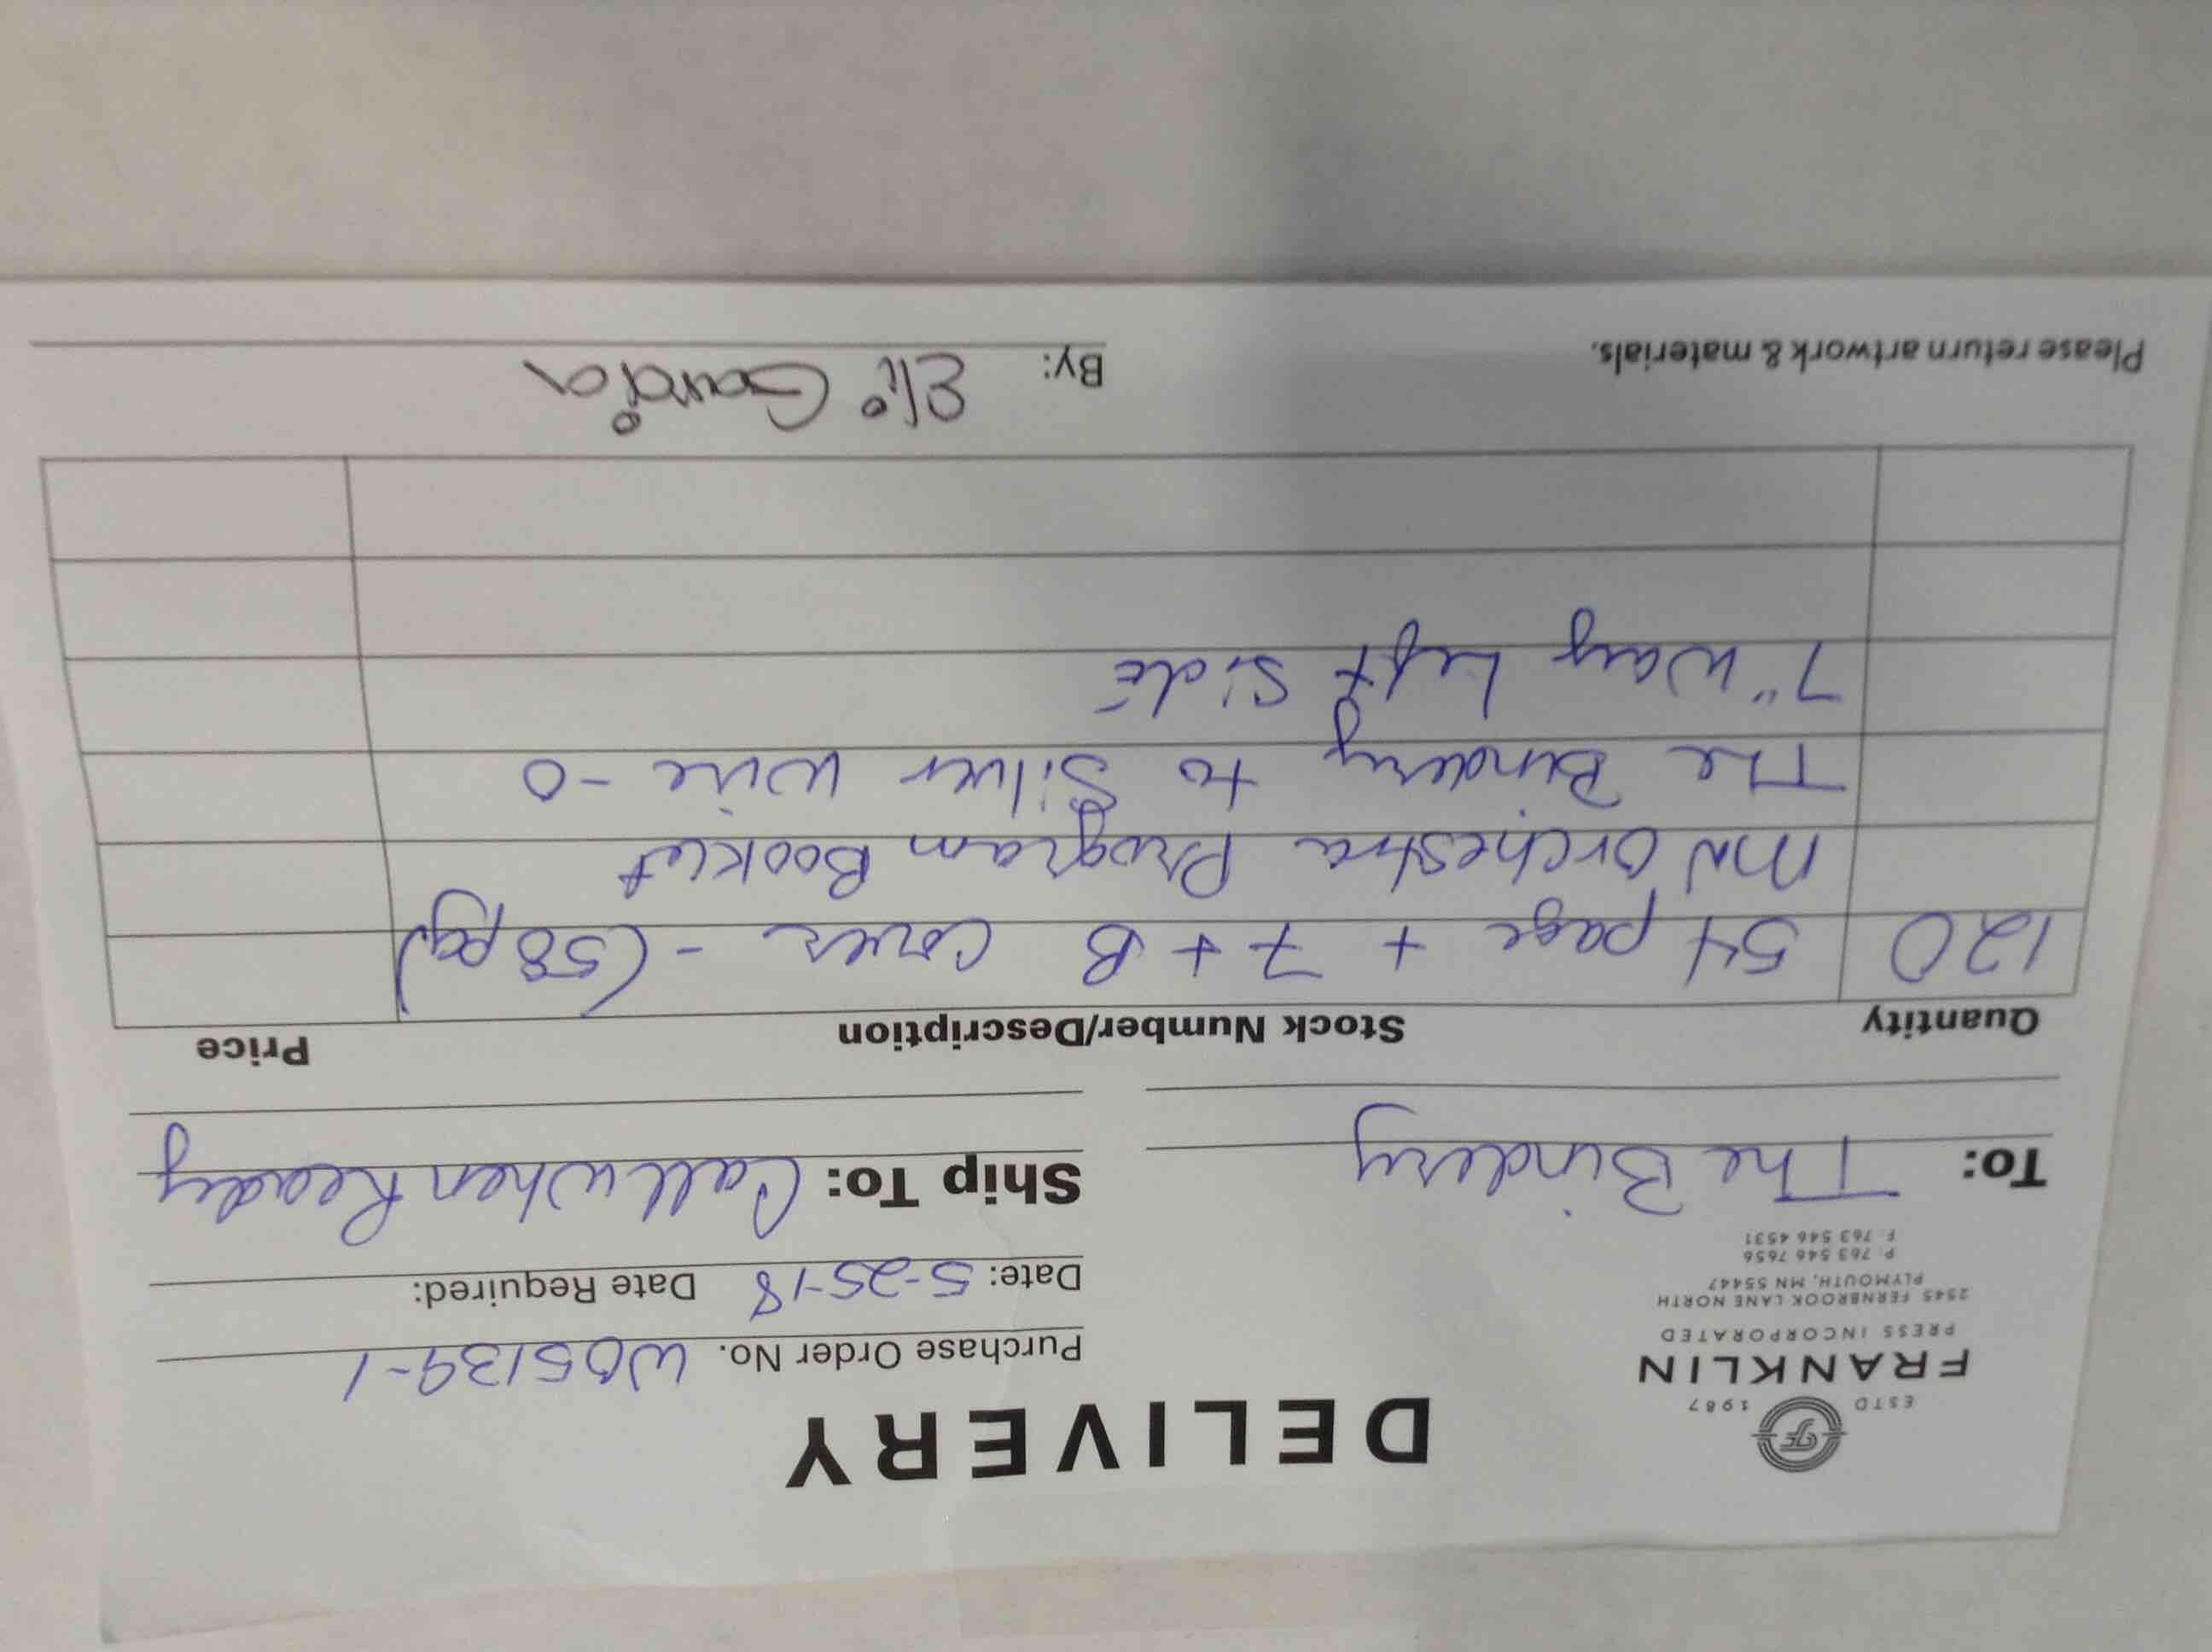 ESTD 1987
FRANKLIN
PRESS INCORPORATED
2545 FERNBROOK LANE NORTH
PLYMOUTH, MN 55447
P: 763 546 7656
F: 763 546 4531
DELIVERY
Purchase Order No. W05139-1
Date: 5-25-18 Date Required:
To: The Bindery
Ship To: Call when Ready
Quantity Stock Number/Description Price
120 54 page + 7 + B Cover - (58 pg)
MN Orchestra Program Booklet
The Bindery to Silver Wire-O
7" Way Left Side
Please return artwork & materials. By: Eli